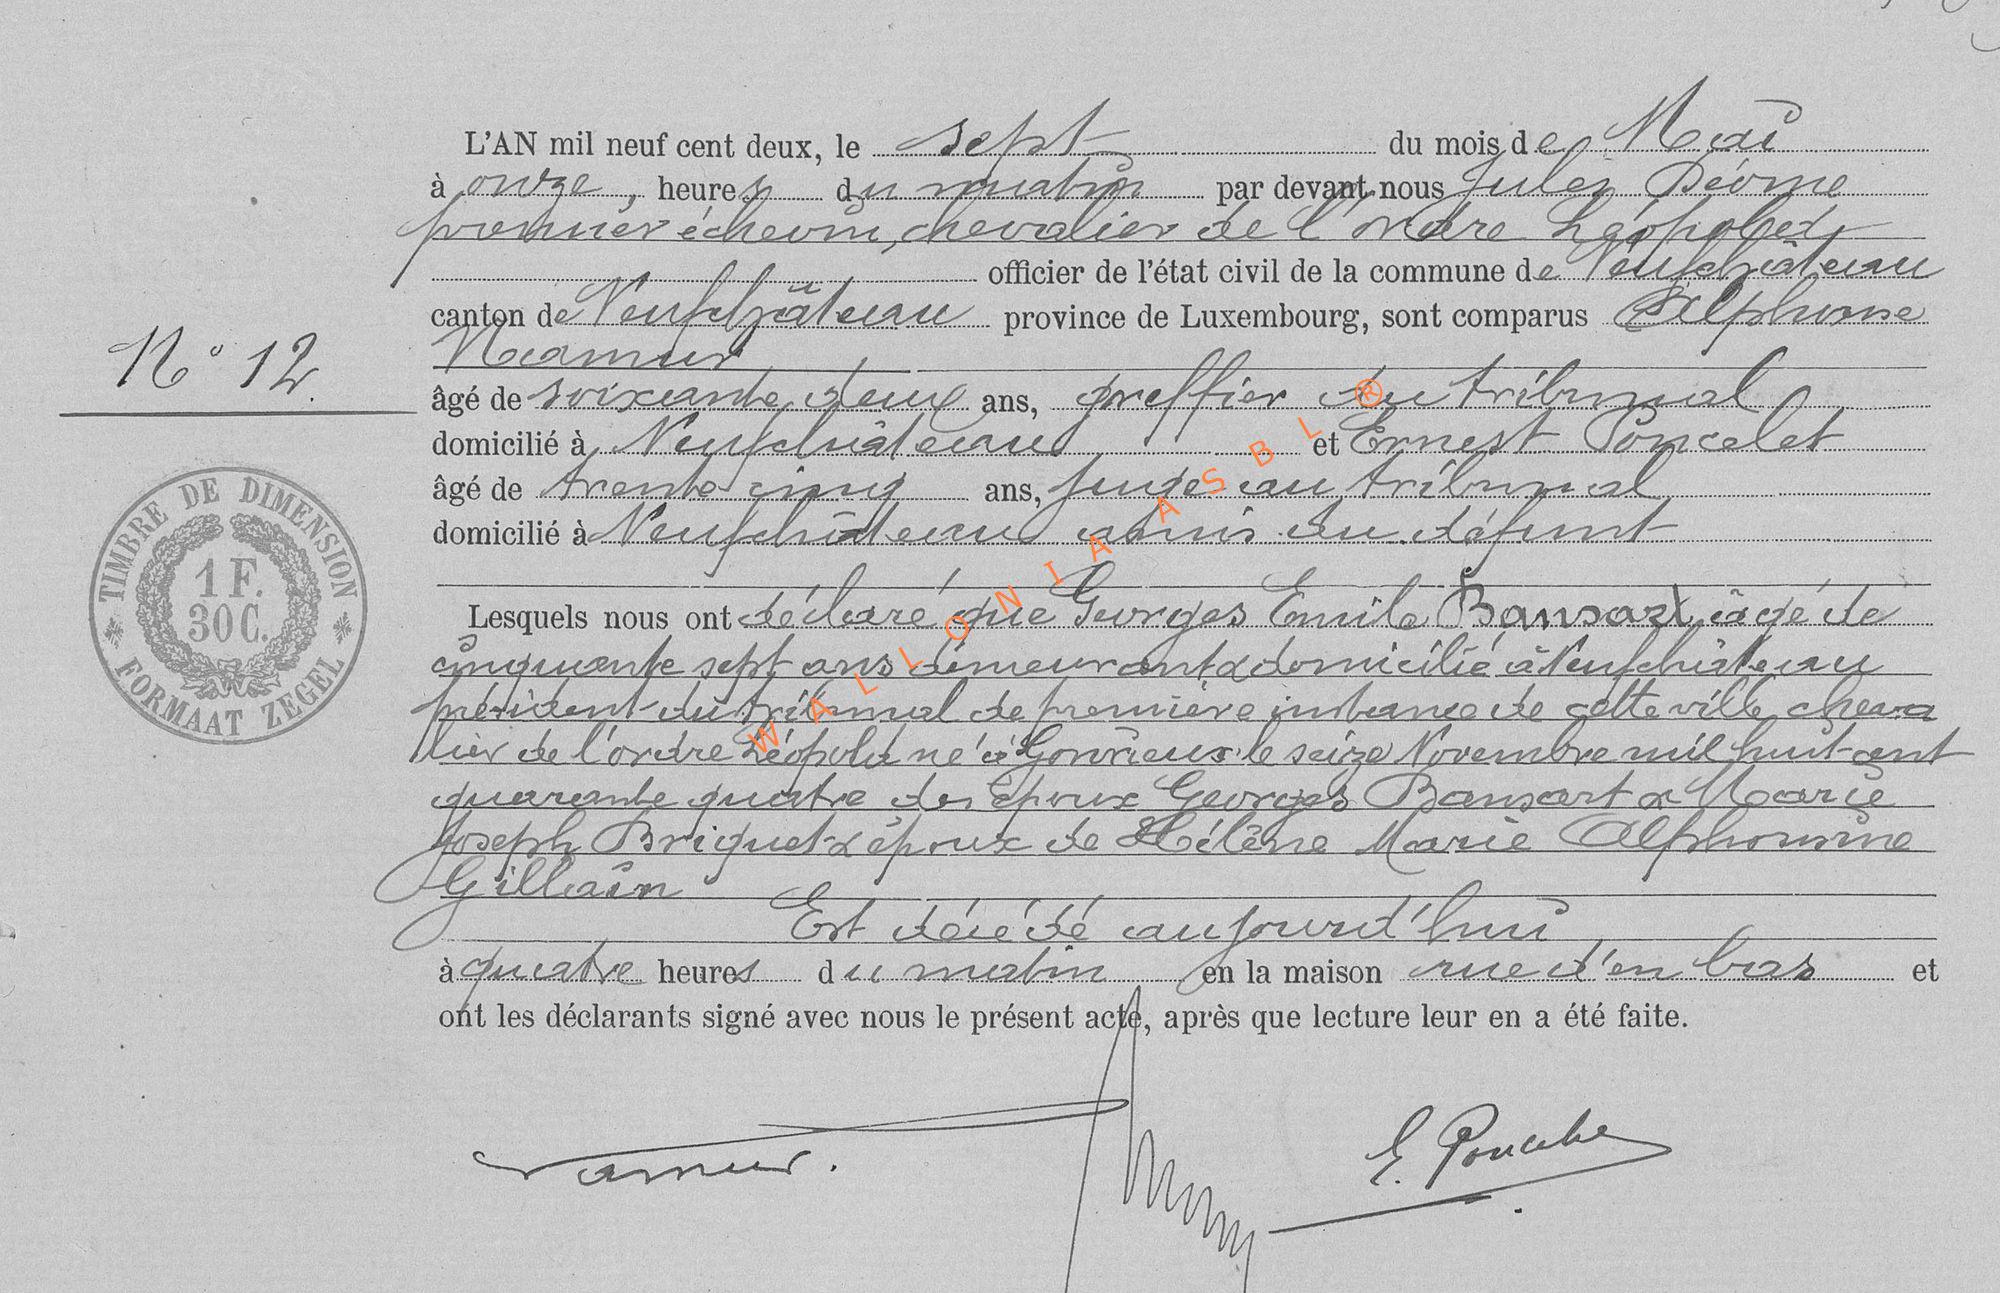 L'AN mil neuf cent deux, le sept du mois de Mai
à onze, heures du matin par devant nous Jules Déome
premier échevin, chevalier de l'ordre Léopold
officier de l'état civil de la commune de Neufchâteau
canton de Neufchâteau province de Luxembourg, sont comparus Alphonse
Namur
N° 12.
âgé de soixante deux ans, greffier du tribunal
domicilié à Neufchâteau et Ernest Poncelet
âgé de trente cinq ans, juge au tribunal
domicilié à Neufchâteau amis du défunt
Lesquels nous ont déclaré que Georges Emile Bansart âgé de
cinquante sept ans demeurant & domicilié à Neufchâteau
président du tribunal de première instance de cette ville cheva
lier de l'ordre Léopold né à Gonrieux le seize Novembre mil huit cent
quarante quatre des époux Georges Bansart & Marie
Joseph Briquet & époux de Hélène Marie Alphonsine
Gillain
Est décédé aujourd'hui
à quatre heures du matin en la maison rue d'en bas et
ont les déclarants signé avec nous le présent acte, après que lecture leur en a été faite.
Namur.
E. Poncelet
TIMBRE DE DIMENSION
1 F.
30 C.
FORMAAT ZEGEL
WALLONIA ASBL ®